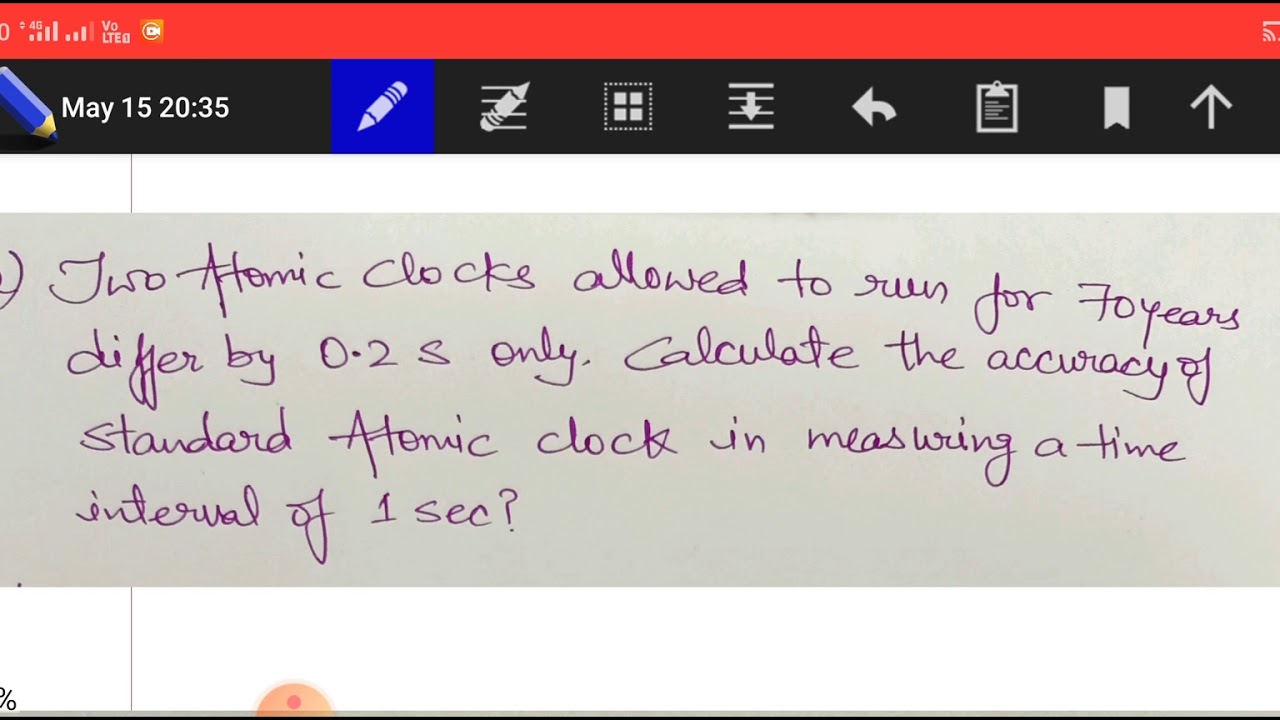 4G Vo LTE
May 15 20:35
Two Atomic Clocks allowed to run for 70years
differ by 0.2 s only. Calculate the accuracy of
standard Atomic clock in measuring a time
interval of 1 sec?
%